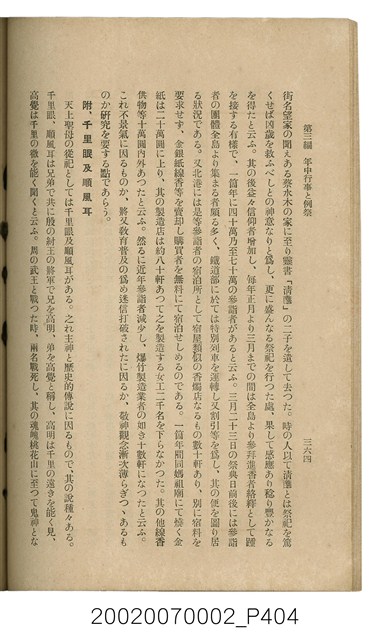 第三編　年中行事と例祭
三六四
街名望家の聞えある蔡水木の家に至り靈書「清醮」の二字を遺して去つた。時の人以て清醮とは祭祀を篤
くせば凶歲を救ふべしとの神意なりと爲し、更に盛んなる祭祀を行つた處、果して感應あり稔り豐かなる
を得たと云ふ。其の後益々信仰者增加し、每年正月より三月までの間は全島より參拜進香者絡繹として踵
を接する有樣で、一箇年に四十萬乃至七十萬の參詣者があると云ふ。三月二十三日の祭典日前後には參詣
者の團體全島より集まる者頗る多く、鐵道部に於ては特別列車を運轉し又割引等を爲し、其の便を圖り居
る狀況である。又北港には是等參詣者の宿泊所として宿屋類似の香燭店なるもの數十軒あり、別に宿料を
要求せず、金銀紙線香等を賣却し購買者を無料にて宿泊せしめるのである。一箇年間同媽祖廟にて燒く金
紙は二十萬圓に上り、其の製造店は約八十軒あつて之を製造する女工二千名を下らなかつた。其の他線香
供物等十萬圓內外あつたと云ふ。然るに近年參詣者減少し、爆竹製造業者の如き十數軒になつたと云ふ。
これ不景氣に因るものか、將又敎育普及の爲め迷信打破されたに因るか、敬神觀念漸次薄らぎつゝあるも
のか硏究を要する點であらう。
附、千里眼及順風耳
天上聖母の從祀としては千里眼及順風耳がある。之れ主神と歷史的傳說に因るもので、其の說種々ある。
千里眼、順風耳は兄弟で共に殷の紂王の將軍で兄を高明、弟を高覺と稱し、高明は千里の遠きを能く見、
高覺は千里の微を能く聞くと云ふ。周の武王と戰つた時、兩名戰死し、其の魂魄桃花山に至つて鬼神とな
20020070002_P404